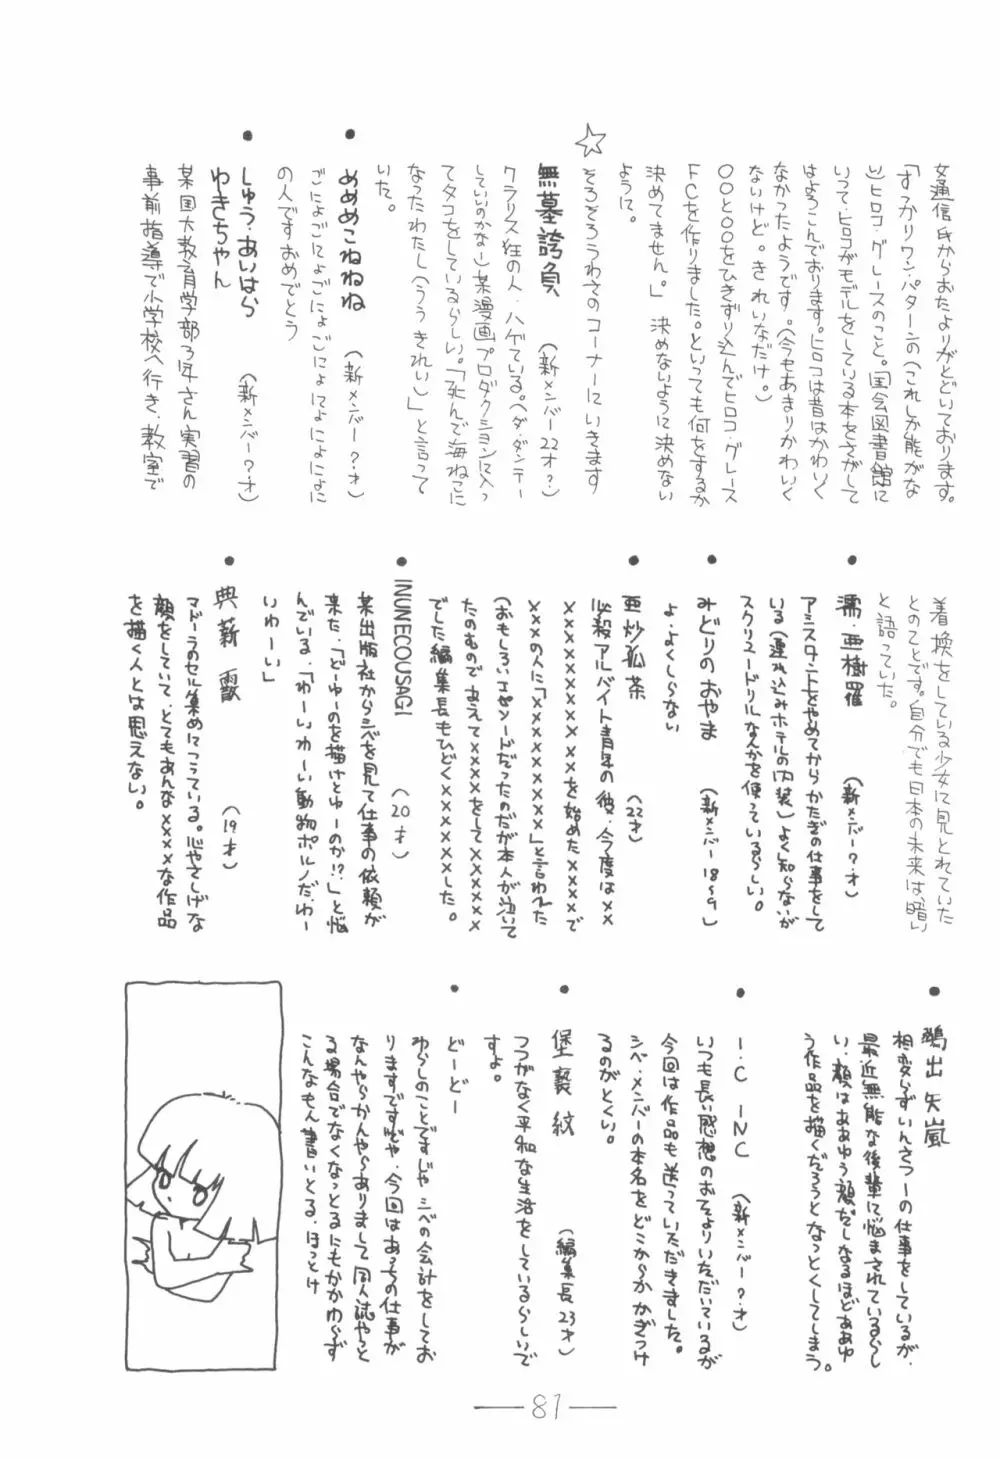 女通信氏からおたよりがとどいております。
「すっかりワン・パターンの(これしか能がな
い)ヒロコ・グレースのこと。「国会図書館に
いって、ヒロコがモデルをしている本をさがして
はよろこんでおります。ヒロコは昔はかわいく
なかったようです。(今もあまりかわいく
ないけど。きれいなだけ。)
〇〇と〇〇をひきずり込んでヒロコ・グレース
FCを作りました。といっても何をするか
決めてません。」決めないように決めない
ように。
☆
そろそろうわさのコーナーにいきます
無墓誇負 (新メンバー22才?)
クラリス狂の人、ハゲている。(ダ・ダンテー
していいのかなー)某漫画プロダクションに入っ
てタコをしているらしい。「死んで海ねこに
なったわたし(ううきれい)」と言って
いた。
● めめめこねねね (新メンバー?・才)
ごにょごにょごにょごにょごにょにょにょにょに
の人ですおめでとう
● しゅう・あいはら (新メンバー?・才)
わきちゃん
某国大教育学部3年さん実習の
事前指導で小学校へ行き、教室で
着換をしている少女に見とれていた
とのことです。自分でも日本の未来は、暗い
と語っていた。
● 濡・亜樹羅 (新メンバー?・才)
アシスタントをやめてからかたぎの仕事をして
いる(連れ込みホテルの内装)よく知らないが
スクリュードリルなんかを使っているらしい。
● みどりのおやま (新メンバー18〜9)
よ・よくしらない
● 亜炒狐茶 (22才)
必殺アルバイト青年の彼・今度は××
××××××××を始めた××××で
××××の人に「××××××××」と言われた
(おもしろいエピソードだったのだが本人が泣いて
たのもので あえて××××をして×××××
でした編集長もひどく××××××した。
● INUNECOUSAGI (20才)
某出版社からシベを見て仕事の依頼が
来た、「どーゆーのを描けとゆーのか!?」と悩
んでいる、「わーいわーい動物ポルノだ、わー
いわーい」
● 典薪霰 (19才)
マドーラのセル集めにこっている。心やさしげな
顔をしていて、とてもあんな××××な作品
を描く人とは思えない。
● 鵺出矢嵐
相変らずいんさつーの仕事をしているが、
最近無能な後輩に悩まされているらし
い、顔はああゆう顔だしなるほどああゆ
う作品を描くだろうとなっとくしてしまう。
● I・C INC (新メンバー?・才)
いつも長い感想のおたよりいただいているが
今回は作品も送っていただきました。
シベ・メンバーの本名をどこからかかぎつけ
るのがとくい。
● 堡褻紋 (編集長23才)
つつがなく平和な生活をしているらしいで
すよ。
● どーどー
わらしのことですじゃ シベの会計をしてお
りますですじゃ、今回はあっちの仕事が
なんやらかんやらありまして 同人誌やっと
る場合でなくなっとるにもかかわらず
こんなもん書いとる、ほっとけ
—81—